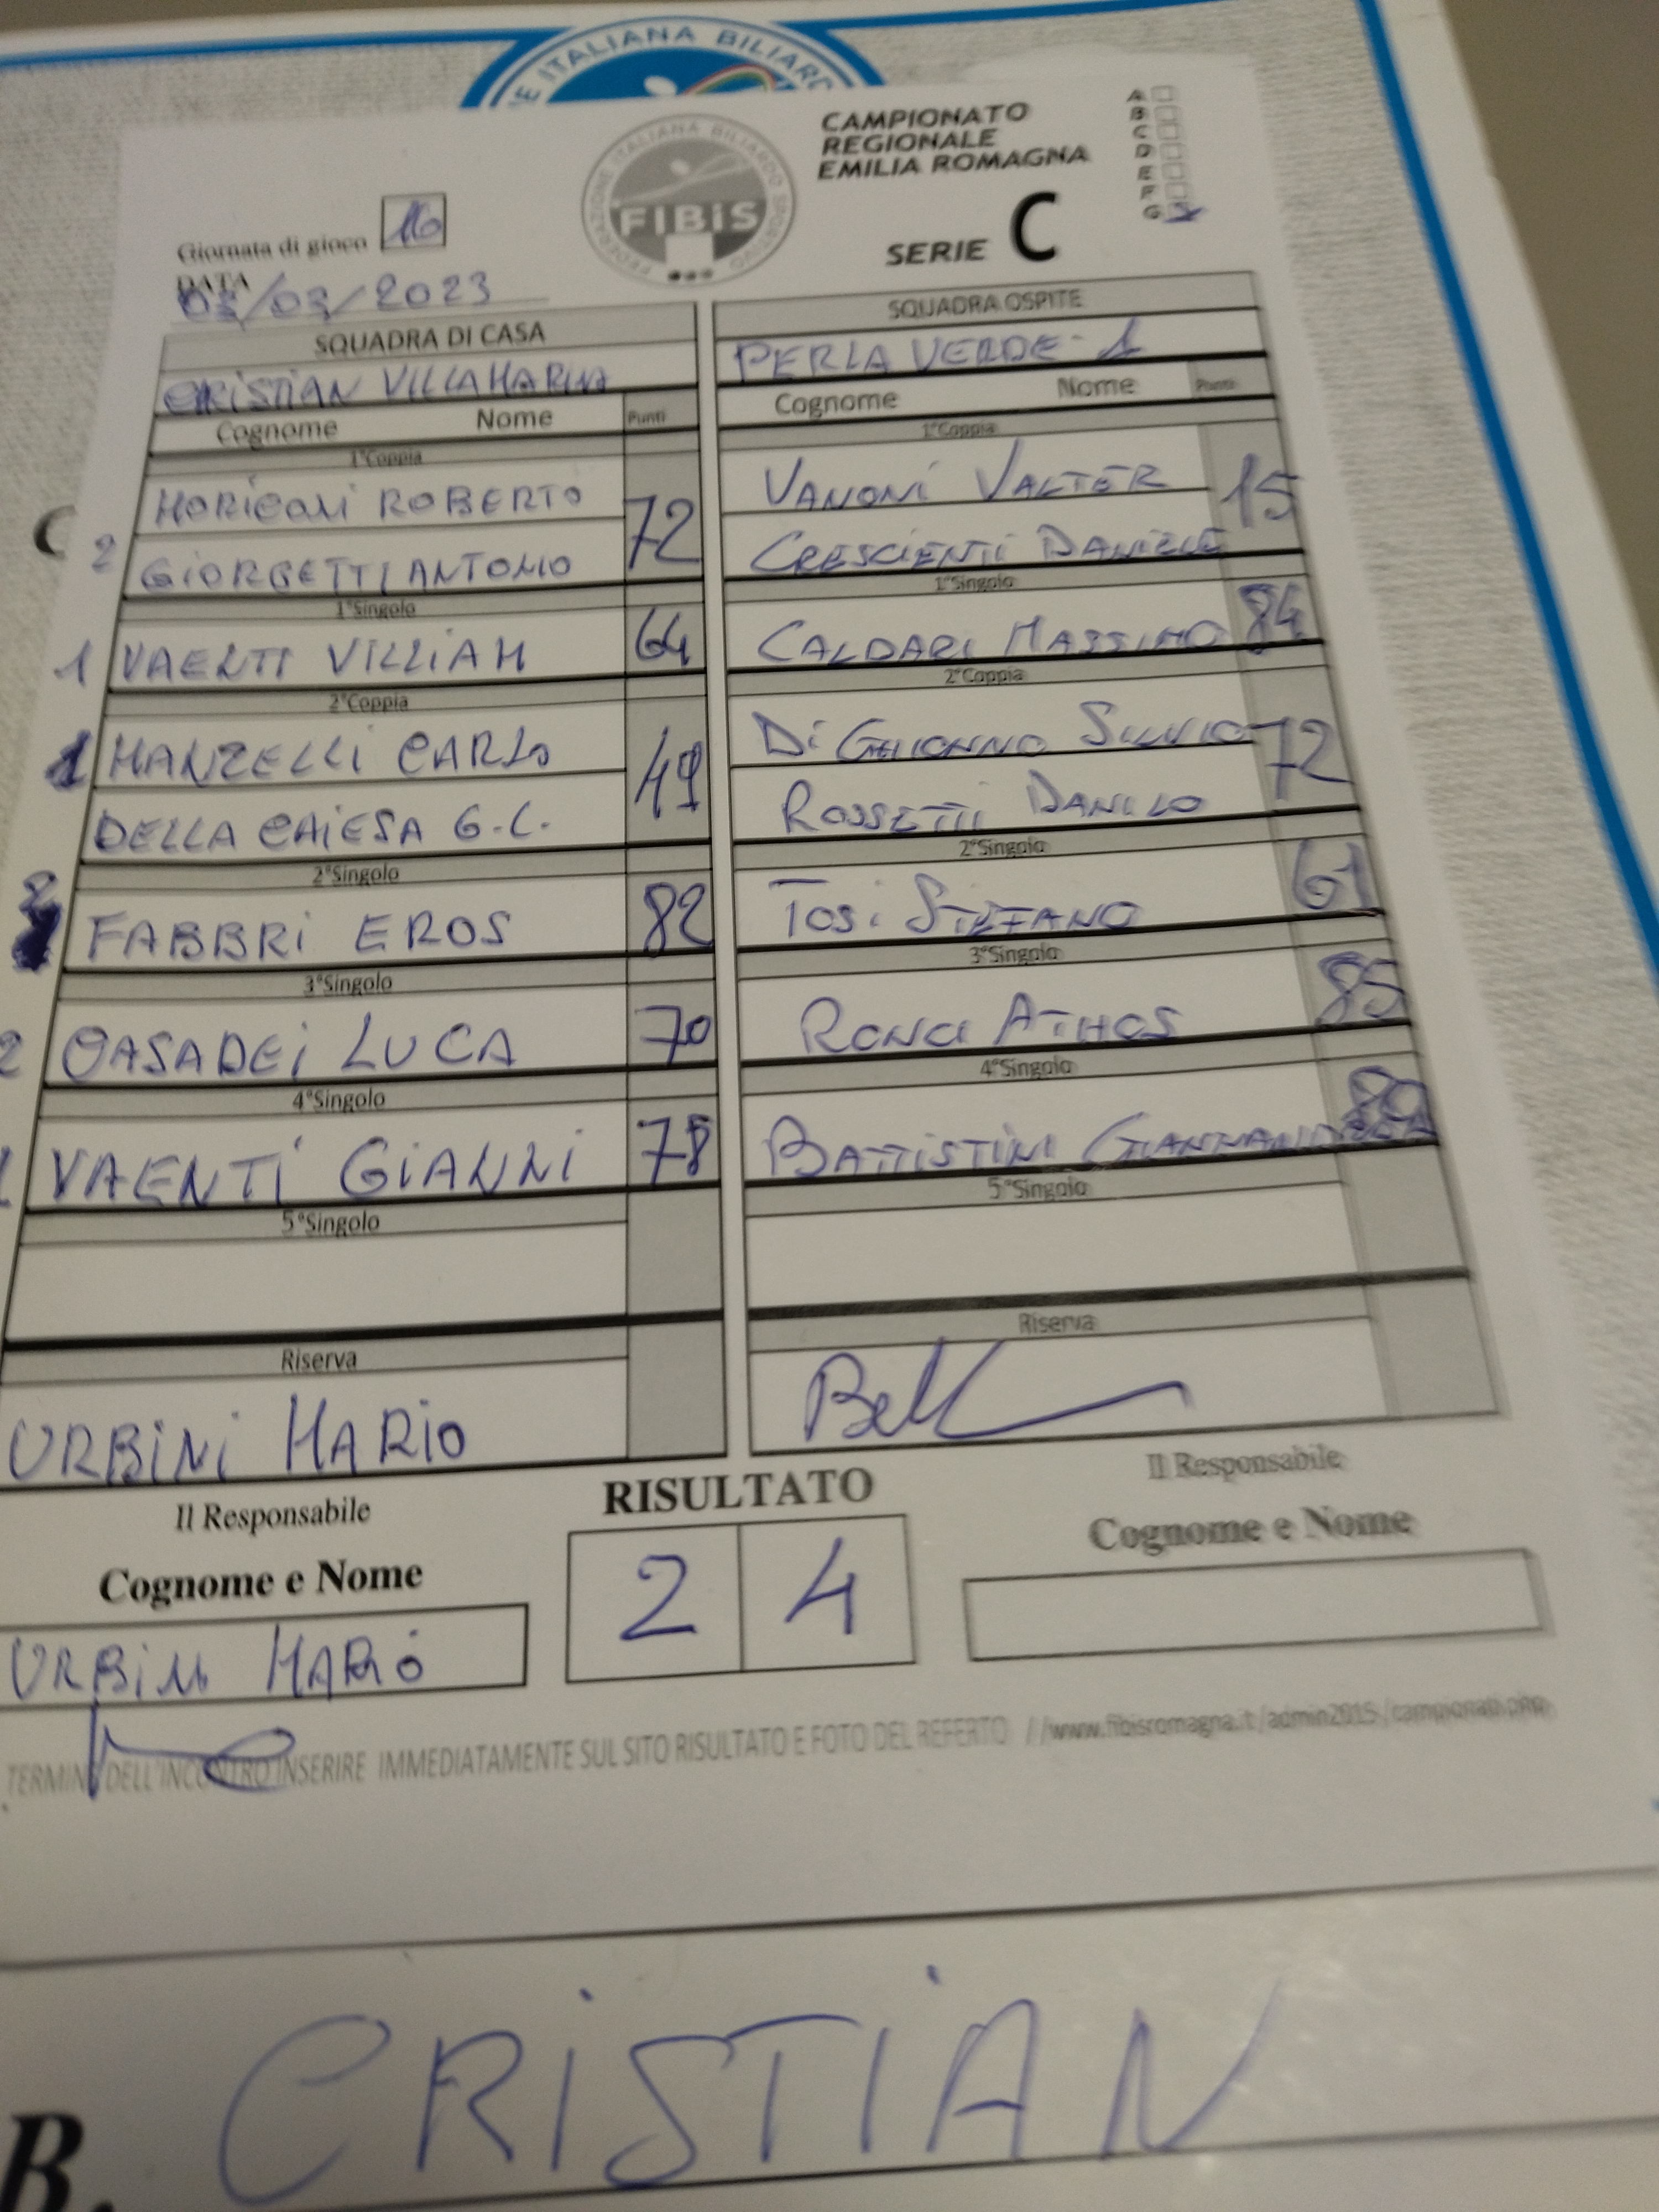 E ITALIANA BILIARD
FEDERAZIONE ITALIANA BILIARDO SPORTIVO
FIBiS
CAMPIONATO
REGIONALE
EMILIA ROMAGNA
SERIE C
A
B
C
D
E
F
G
Giornata di gioco 16
DATA
03/03/2023
SQUADRA DI CASA
SQUADRA OSPITE
CRISTIAN VILLAMARINA
PERLA VERDE-1
Cognome Nome Punti
Cognome Nome Punti
1°Coppia
1°Coppia
MORICONI ROBERTO
VANONI VALTER
72
15
2 GIORGETTI ANTONIO
CRESCENTI DANIELE
1°Singolo
1°Singolo
1 VAENTI VILLIAM 64
CALDARI MASSIMO 84
2°Coppia
2°Coppia
1 MANZELLI CARLO
49
72
DELLA CHIESA G.C.
ROSSETTI DANILO
2°Singolo
2°Singolo
2 FABBRI EROS 82
TOSI STEFANO 61
3°Singolo
3°Singolo
2 CASADEI LUCA 70
RONCI ATHOS 85
4°Singolo
4°Singolo
VAENTI GIANNI 78
BATTISTINI
5°Singolo
5°Singolo
Riserva
Riserva
URBINI MARIO
Il Responsabile
RISULTATO
Il Responsabile
Cognome e Nome
2 4
Cognome e Nome
URBINI MARIO
TERMINE DELL'INCONTRO INSERIRE IMMEDIATAMENTE SUL SITO RISULTATO E FOTO DEL REFERTO //www.fibisromagna.it/admin2015/campionati.php
B. CRISTIAN